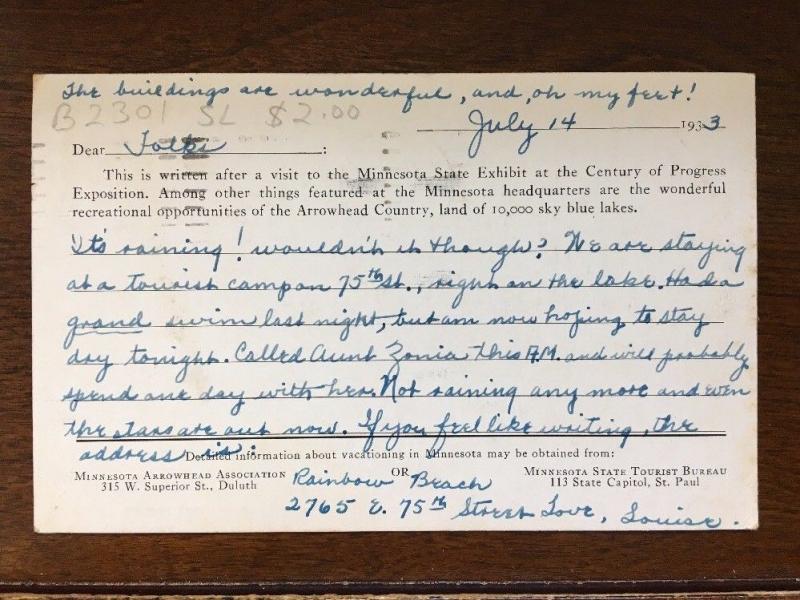 The buildings are wonderful, and, oh my feet!
B2301 SL $2.00
July 14 1933
Dear Folks:
This is written after a visit to the Minnesota State Exhibit at the Century of Progress
Exposition. Among other things featured at the Minnesota headquarters are the wonderful
recreational opportunities of the Arrowhead Country, land of 10,000 sky blue lakes.
It's raining! wouldn't it though? We are staying
at a tourist camp on 75th St., right on the lake. Had a
grand swim last night, but am now hoping to stay
dry tonight. Called Aunt Zonia this A.M. and will probably
spend one day with her. Not raining any more and even
the stars are out now. If you feel like writing, the
address is:
Detailed information about vacationing in Minnesota may be obtained from:
Minnesota Arrowhead Association OR Minnesota State Tourist Bureau
315 W. Superior St., Duluth 113 State Capitol, St. Paul
Rainbow Beach
2765 E. 75th Street Love, Louise.